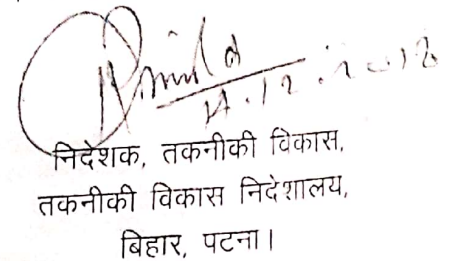 14.12.2018
निदेशक, तकनीकी विकास,
तकनीकी विकास निदेशालय,
बिहार, पटना।